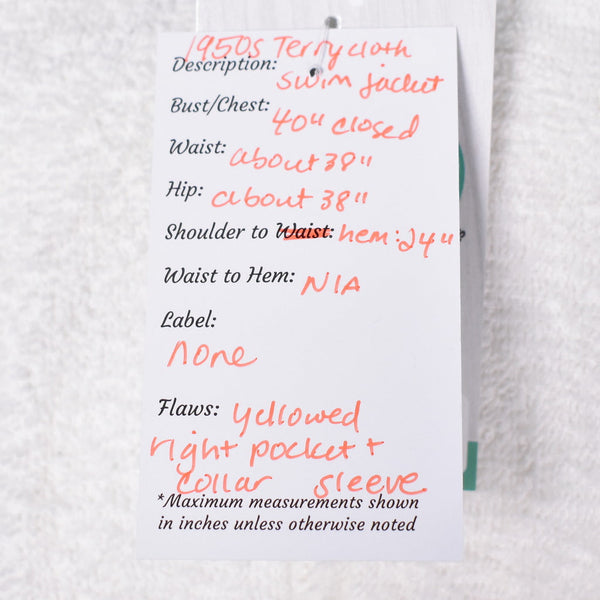 1950s Terrycloth
Description: swim jacket
Bust/Chest: 40" closed
Waist: about 38"
Hip: about 38"
Shoulder to Waist: hem: 24"
Waist to Hem: N/A
Label:
none
Flaws: yellowed
right pocket +
collar sleeve
*Maximum measurements shown
in inches unless otherwise noted